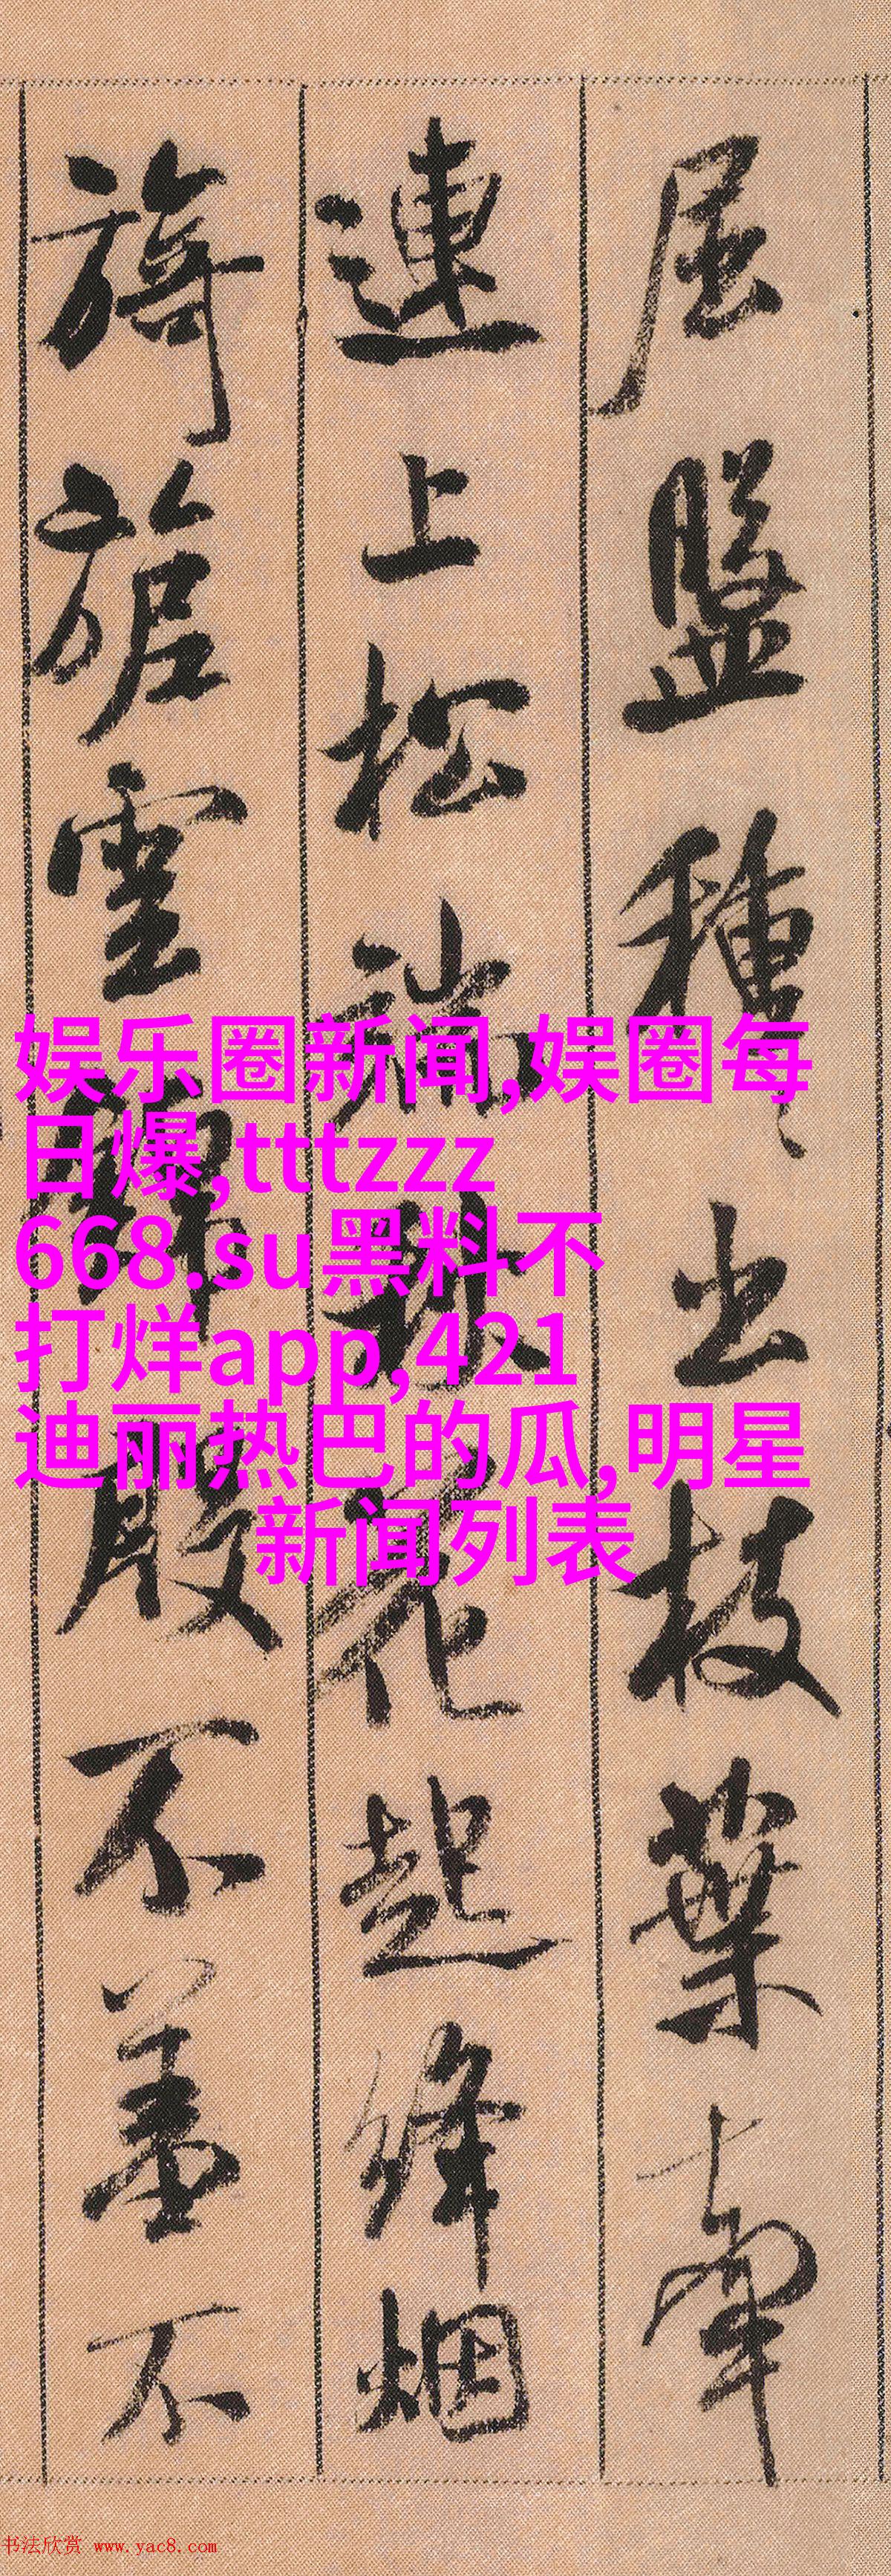 屈盤種種出枝葉牽
連上松端秋花起絳烟
旖旎雲錦殷不羞不
娱乐圈新闻,娱圈每
日爆,tttzzz
668.su黑料不
打烊app,421
迪丽热巴的瓜,明星
新闻列表
书法欣赏 www.yac8.com